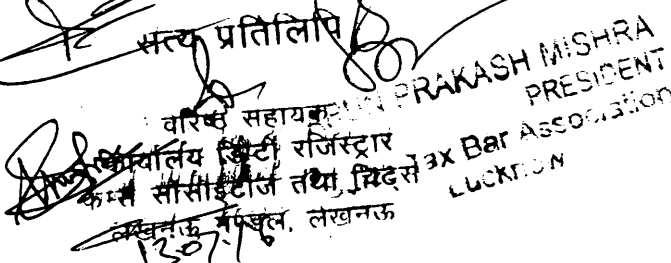 सत्य प्रतिलिपि
वरिष्ठ सहायक
कार्यालय डिप्टी रजिस्ट्रार
फर्म्स सोसाइटीज तथा चिट्स
लखनऊ मण्डल, लखनऊ
13.07.16
PRAKASH MISHRA
PRESIDENT
Tax Bar Association
LUCKNOW